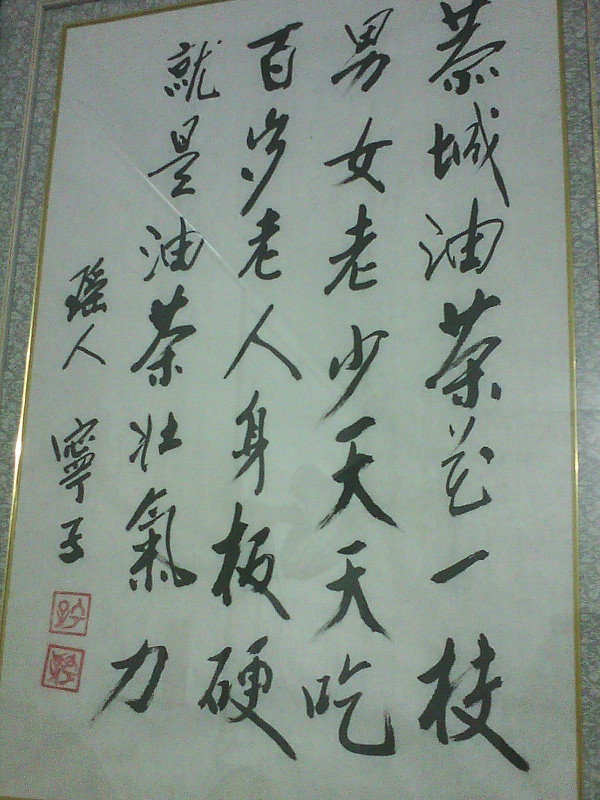 恭城油茶花一枝
男女老少天天吃
百岁老人身板硬
就是油茶壮氣力
瑶人 寧